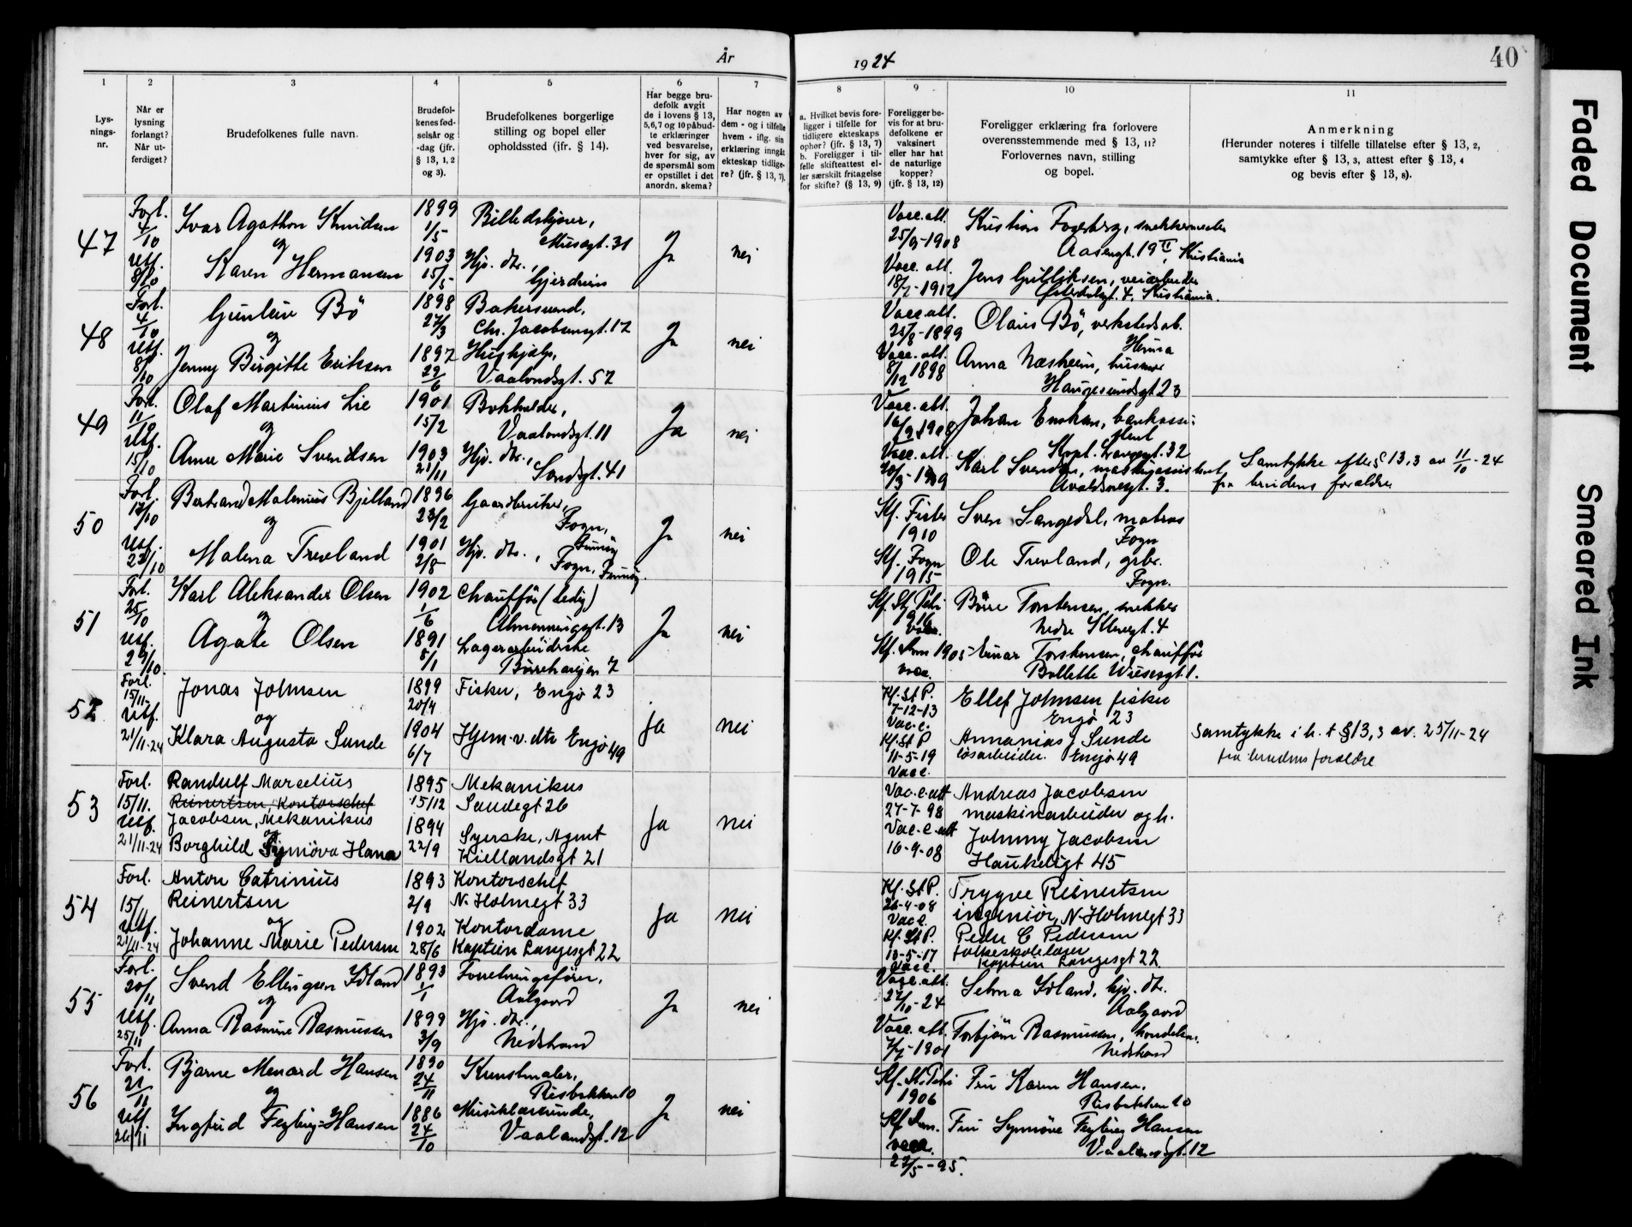 År
1924
40
1
2
3
4
5
6
7
8
9
10
11
Lys-
nings-
nr.
Når er
lysning
forlangt?
Når ut-
ferdiget?
Brudefolkenes fulle navn.
Brudefol-
kenes fød-
selsår og
-dag (jfr.
§ 13, 1, 2
og 3).
Brudefolkenes borgerlige
stilling og bopel eller
opholdssted (ifr. § 14).
Har begge bru-
defolk avgit
de i lovens § 13,
5,6,7 og 10 påbud-
te erklæringer
ved besvarelse,
hver for sig, av
de spørsmål som
er opstillet i det
anordn. skema?
Har nogen av
dem - og i tilfelle
hvem - iflg. sin
erklæring inngåt
ekteskap tidlige-
re? (jfr. § 13, 7).
a. Hvilket bevis fore-
ligger i tilfelle for
tidligere ekteskaps
ophør? (jfr. § 13, 7)
b. Foreligger i til-
felle skifteattest el-
ler særskilt fritagelse
for skifte? (§ 13, 9)
Foreligger be-
vis for at bru-
defolkene er
vaksinert
eller har hat
de naturlige
kopper?
(jfr. § 13, 12)
Foreligger erklæring fra forlovere
overensstemmende med § 13, 11?
Forlovernes navn, stilling
og bopel.
Anmerkning
(Herunder noteres i tilfelle tillatelse efter § 13, 2,
samtykke efter § 13, 3, attest efter § 13, 4
og bevis efter § 13, 8).
47
Forl.
4/10
Utf.
8/10
Ivar Agathon Knudsen
og
Karen Hermansen
1899
1/5
1903
15/5
Billedskjærer,
Musegt. 31
Hjv. dtr.,
Gjerdrum
Ja
nei
Vacc. att.
25/9-1908
Vacc. att.
1912
Kristian Fogelberg, snekkermester
Kristiania
Jens Gulliksen, veiarbeider
4. Kristiania.
48
Forl.
4/10
Utf.
8/10
Gunleiv Bö
og
Jenny Birgitte Eriksen
1898
27/3
1897
22/6
Bakersvend,
Chr. Jacobsensgt. 17
Hushjelp,
Vaalandsgt. 57
Ja
nei
Vacc. att.
25/8-1899
Vacc. att.
8/12 1898
Olaus Bö, verkstedsarb.
Anna Næsheim, husmor
Haugesundsgt 23
49
Forl.
11/10
Utf.
15/10
Olaf Martinius Lie
og
Anne Marie Svendsen
1901
15/2
1903
21/11
Bokholder,
Vaalandsgt. 11
Hjv. dtr.,
Sandsgt. 41
Ja
nei
Vacc. att.
Vacc. att.
Johan Enokson, bankassi-
stent
Kapt. Langesgt. 32
Karl Svendsen, maskinassistent,
Avaldsnesgt. 3.
Samtykke efter § 13,3 av 11/10-24
fra brudens forældre
50
Forl.
17/10
Utf.
23/10
Bertrand Malenius Bjelland
og
Malena Trevland
1896
23/2
1901
2/8
Gaardbruker,
Fogn,
Finnøy
Hjv. dtr.,
Fogn, Finnøy.
Ja
nei
Kf. Fister
1910
Kf. Fogn
1915
Sven Langedal, matros
Fogn
Ole Trevland, grbr.
Fogn.
51
Forl.
25/10
Utf.
29/10
Karl Aleksander Olsen
og
Agate Olsen
1902
1/6
1891
5/1
Chauffør (ledig)
Almenningsgt. 13
Lagerarbeiderske
Børehaugen 7
Ja
nei
Kf. St. Petri
1916
vacc.
Kf. Dom 1905
vacc.
Børre Torstensen, snekker
Nedre Stleregt. 4
Einar Torstensen, chauffør
Bollette Wiesesgt 1.
52
Forl.
15/11
Utf.
21/11-24
Jonas Johnsen
og
Klara Augusta Sunde
1899
20/4
1904
6/7
Fisker, Engø 23
Hjem.v. dtr Engø 49
Ja
nei
Kf. St P.
7-12-13
Vac.c.
Kf. St P
11-5-19
Vacc.
Ellef Johnsen fisker
Engø 23
Annanias Sunde
løsarbeider. Engø 49
Samtykke i h. t § 13,3 av. 25/11-24
fra brudens forældre
53
Forl.
15/11.
Utf.
21/11-24
Randulf Marcelius
Reinertsen, Kontorschef
Jacobsen, Mekanikus
og
Borghild Synnöva Hana
1895
15/12
1894
22/9
Mekanikus
Sandegt 26
Syerske, Agnet
Kiellandsgt 21
Ja
nei
Vac.c.att
27-7-98
Vac.c.att
16-9-08
Andreas Jacobsen
maskinarbeider og h.
Johnny Jacobsen
Haukeligt 45
54
Forl.
15/11
Utf.
21/11-24
Anton Catrinius
Reinertsen
og
Johanne Marie Pedersen
1893
2/9
1902
28/6
Kontorschef
N. Holmegt 33
Kontordame
Kaptein Langesgt 22
Ja
nei
Kf. St P.
26-4-08
Vacc
Kf. St P.
10-5-17
Vacc.
Trygve Reinertsen
ingeniör, N-Holmegt 33
Peder C Pedersen
folkeskolelærer
Kaptein Langesgt 22
55
Forl.
20/11
Utf.
25/11
Svend Ellingsen Idland
og
Anna Rasmine Rasmussen
1893
1/1
1899
3/9
Forretningsfører,
Aalgaard
Hjv. dtr.,
Nedstrand
Ja
nei
Vacc. att.
27/10-24
Vacc. att.
1901
Selma Idland, hjv. dtr.
Aalgaard
Torbjörn Rasmussen, handelsm.
Nedstrand
56
Forl.
21/11
Utf.
26/11
Bjarne Menard Hansen
og
Ingfrid Fegbring-Hansen
1890
24/11
1886
24/10
Kunstmaler,
Risbakken 10
Musiklærerinde,
Vaalandsgt. 12
Ja
nei
Kf. St. Petri
1906
Kf Dom.
vacc.
22/5-95.
Fru Karen Hansen.
Risbakken 10
Fru Synnöve Fegbring Hansen
Vaalandsgt. 12
Faded Document
Smeared Ink